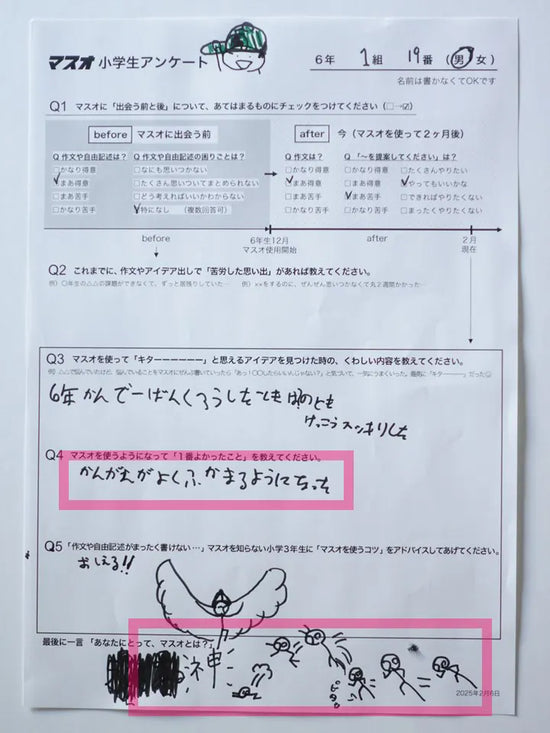 マスオ 小学生アンケート
6年 1組 19番 (男)女)
名前は書かなくてOKです
Q1 マスオに「出会う前と後」について、あてはまるものにチェックをつけてください(□→☑)
before マスオに出会う前
Q 作文や自由記述は?
□かなり得意
☑まあ得意
□まあ苦手
□かなり苦手
Q 作文や自由記述の困りごとは?
□なにも思いつかない
□たくさん思いついてまとめられない
□どう考えればいいかわからない
☑特になし (複数回答可)
after 今(マスオを使って2ヶ月後)
Q 作文は?
□かなり得意
☑まあ得意
□まあ苦手
□かなり苦手
Q 「〜を提案してください」は?
□かなり得意
□まあ得意
☑まあ苦手
□かなり苦手
□たくさんやりたい
☑やってもいいかな
□できればやりたくない
□まったくやりたくない
before
6年生12月
マスオ使用開始
after
2月
現在
Q2 これまでに、作文やアイデア出しで「苦労した思い出」があれば教えてください。
例)〇年生の△△の課題ができなくて、ずっと居残りしていた… 例)××をするのに、ぜんぜん思いつかなくて丸2週間かかった…
Q3 マスオを使って「キターーーーー」と思えるアイデアを見つけた時の、くわしい内容を教えてください。
6年かんで一ばんくろうした
けっこうスッキリした
Q4 マスオを使うようになって「1番よかったこと」を教えてください。
かんがえがよくふかまるようになった
Q5 「作文や自由記述がまったく書けない…」マスオを知らない小学3年生に「マスオを使うコツ」をアドバイスしてあげてください。
おしえる!!
最後に一言「あなたにとって、マスオとは?」
神
2025年2月6日